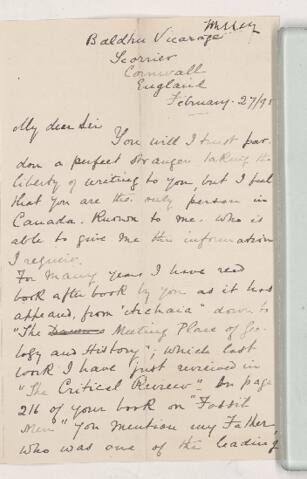 Baldhu Vicarage
Scorrier
Cornwall
England
February. 27/95
My dear Sir
You will I trust par-
don a perfect stranger taking the
liberty of writing to you, but I feel
that you are the only person in
Canada. Known to me. who is
able to give me the information
I require.
For many years I have read
book after book by you as it has
appeard, from "Archaia" down to
"The Meeting Place of Geo-
logy and History"; which last
work I have just reviewed in
"The Critical Review". On page
216 of your book on "Fossil
Men" you mention my Father,
who was one of the leading